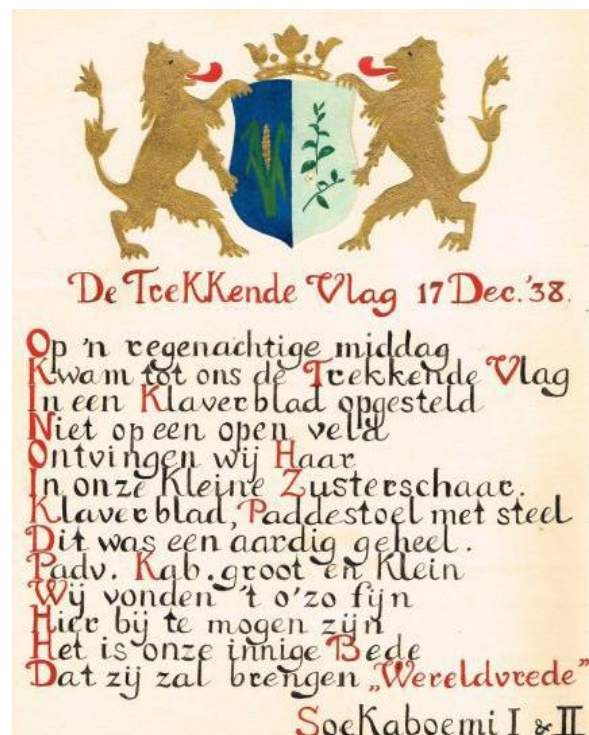 De Trekkende Vlag 17 Dec. '38.
Op 'n regenachtige middag
Kwam tot ons de Trekkende Vlag
In een Klaverblad opgesteld
Niet op een open veld
Ontvingen wij Haar
In onze Kleine Zusterschaar.
Klaverblad, Paddestoel met steel
Dit was een aardig geheel.
Padv. Kab. groot en Klein
Wij vonden 't o'zo fijn
Hier bij te mogen zijn
Het is onze innige Bede
Dat zij zal brengen „Wereldvrede”
Soekaboemi I & II